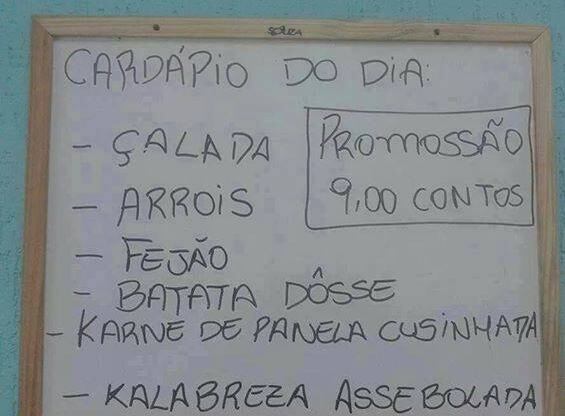 SOUZA
CARDÁPIO DO DIA:
- ÇALADA
- ARROIS
- FEJÃO
- BATATA DÔSSE
- KARNE DE PANELA CUSINHADA
- KALABREZA ASSEBOLADA
PROMOSSÃO
9,00 CONTOS